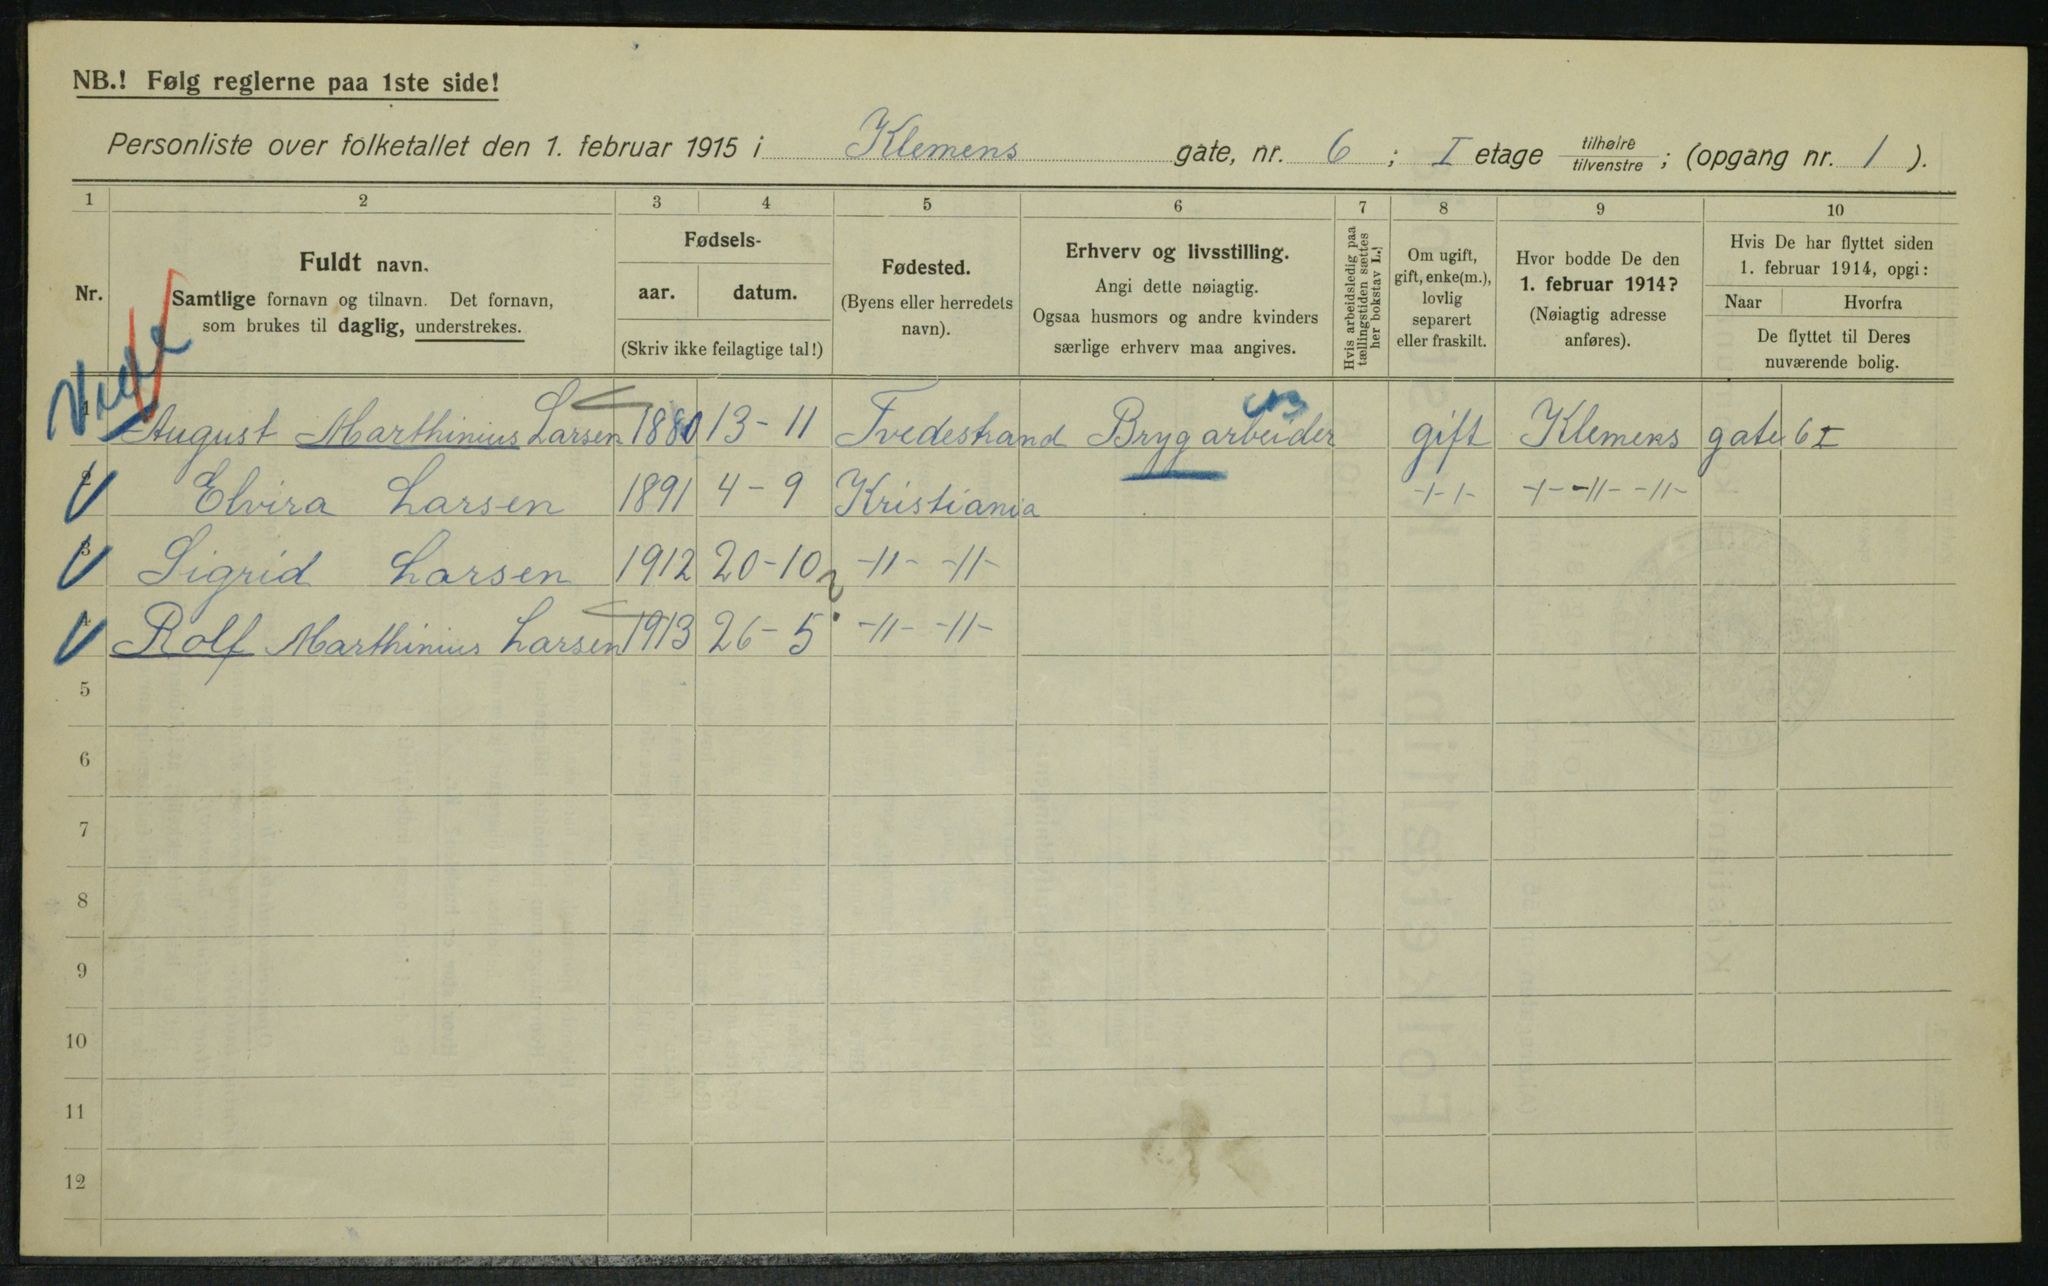 NB.! Følg reglerne paa 1ste side!
Personliste over folketallet den 1. februar 1915 i Klemens gate, nr. 6 ; I etage tilhøire/tilvenstre ; (opgang nr. 1 ).
1 2 3 4 5 6 7 8 9 10
Nr.
Fuldt navn.
Samtlige fornavn og tilnavn. Det fornavn,
som brukes til daglig, understrekes.
Fødsels-
aar. datum.
(Skriv ikke feilagtige tal!)
Fødested.
(Byens eller herredets
navn).
Erhverv og livsstilling.
Angi dette nøiagtig.
Ogsaa husmors og andre kvinders
særlige erhverv maa angives.
Hvis arbeidsledig paa
tællingstiden sættes
her bokstav L.
Om ugift,
gift, enke(m.),
lovlig
separert
eller fraskilt.
Hvor bodde De den
1. februar 1914?
(Nøiagtig adresse
anføres).
Hvis De har flyttet siden
1. februar 1914, opgi:
Naar Hvorfra
De flyttet til Deres
nuværende bolig.
1 August Marthinius Larsen 1880 13-11 Tvedestrand Brygarbeider gift Klemens gate 6 I
2 Elvira Larsen 1891 4-9 Kristiania -"- -"- -"- -"-
3 Sigrid Larsen 1912 20-10 -"- -"-
4 Rolf Marthinius Larsen 1913 26-5 -"- -"-
?
5
6
7
8
9
10
11
12